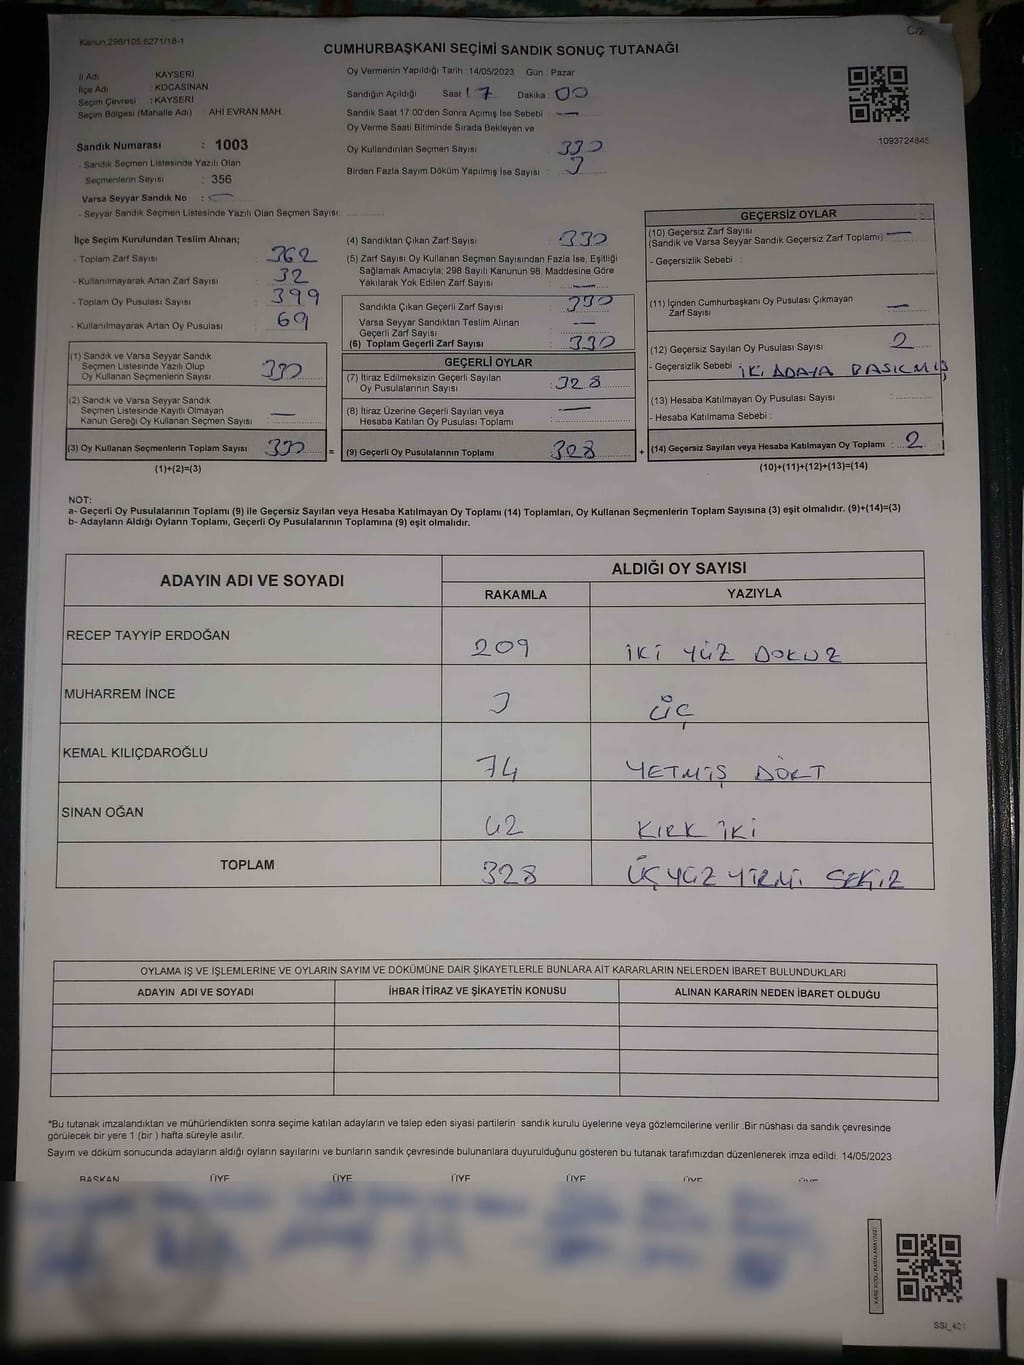 Kanun.298/105,6271/18-1
C/2
CUMHURBAŞKANI SEÇİMİ SANDIK SONUÇ TUTANAĞI
İl Adı KAYSERİ
İlçe Adı KOCASİNAN
Seçim Çevresi : KAYSERİ
Seçim Bölgesi (Mahalle Adı) AHİ EVRAN MAH.
Sandık Numarası : 1003
- Sandık Seçmen Listesinde Yazılı Olan
Seçmenlerin Sayısı : 356
Varsa Seyyar Sandık No : —
- Seyyar Sandık Seçmen Listesinde Yazılı Olan Seçmen Sayısı:
Oy Vermenin Yapıldığı Tarih : 14/05/2023 Gün : Pazar
Sandığın Açıldığı Saat 17 Dakika 00
Sandık Saat 17:00'den Sonra Açımış İse Sebebi —
Oy Verme Saati Bitiminde Sırada Bekleyen ve
Oy Kullandırılan Seçmen Sayısı 330
Birden Fazla Sayım Döküm Yapılmış İse Sayısı : 3
1093724845
İlçe Seçim Kurulundan Teslim Alınan;
- Toplam Zarf Sayısı : 362
- Kullanılmayarak Artan Zarf Sayısı : 32
- Toplam Oy Pusulası Sayısı : 399
- Kullanılmayarak Artan Oy Pusulası : 69
(1) Sandık ve Varsa Seyyar Sandık
Seçmen Listesinde Yazılı Olup
Oy Kullanan Seçmenlerin Sayısı : 330
(2) Sandık ve Varsa Seyyar Sandık
Seçmen Listesinde Kayıtlı Olmayan
Kanun Gereği Oy Kullanan Seçmen Sayısı : —
(3) Oy Kullanan Seçmenlerin Toplam Sayısı : 330
(1)+(2)=(3)
(4) Sandıktan Çıkan Zarf Sayısı : 330
(5) Zarf Sayısı Oy Kullanan Seçmen Sayısından Fazla İse, Eşitliği
Sağlamak Amacıyla; 298 Sayılı Kanunun 98. Maddesine Göre
Yakılarak Yok Edilen Zarf Sayısı : —
Sandıkta Çıkan Geçerli Zarf Sayısı : 330
Varsa Seyyar Sandıktan Teslim Alınan
Geçerli Zarf Sayısı : —
(6) Toplam Geçerli Zarf Sayısı : 330
GEÇERLİ OYLAR
(7) İtiraz Edilmeksizin Geçerli Sayılan
Oy Pusulalarının Sayısı : 328
(8) İtiraz Üzerine Geçerli Sayılan veya
Hesaba Katılan Oy Pusulası Toplamı : —
= (9) Geçerli Oy Pusulalarının Toplamı : 328
GEÇERSİZ OYLAR
(10) Geçersiz Zarf Sayısı
(Sandık ve Varsa Seyyar Sandık Geçersiz Zarf Toplamı) : —
- Geçersizlik Sebebi :
(11) İçinden Cumhurbaşkanı Oy Pusulası Çıkmayan
Zarf Sayısı : —
(12) Geçersiz Sayılan Oy Pusulası Sayısı : 2
- Geçersizlik Sebebi : İKİ ADAYA BASILMIŞ
(13) Hesaba Katılmayan Oy Pusulası Sayısı :
- Hesaba Katılmama Sebebi :
+ (14) Geçersiz Sayılan veya Hesaba Katılmayan Oy Toplamı : 2
(10)+(11)+(12)+(13)=(14)
NOT:
a- Geçerli Oy Pusulalarının Toplamı (9) ile Geçersiz Sayılan veya Hesaba Katılmayan Oy Toplamı (14) Toplamları, Oy Kullanan Seçmenlerin Toplam Sayısına (3) eşit olmalıdır. (9)+(14)=(3)
b- Adayların Aldığı Oyların Toplamı, Geçerli Oy Pusulalarının Toplamına (9) eşit olmalıdır.
ADAYIN ADI VE SOYADI
ALDIĞI OY SAYISI
RAKAMLA YAZIYLA
RECEP TAYYİP ERDOĞAN 209 İKİ YÜZ DOKUZ
MUHARREM İNCE 3 ÜÇ
KEMAL KILIÇDAROĞLU 74 YETMİŞ DÖRT
SİNAN OĞAN 42 KIRK İKİ
TOPLAM 328 ÜÇ YÜZ YİRMİ SEKİZ
OYLAMA İŞ VE İŞLEMLERİNE VE OYLARIN SAYIM VE DÖKÜMÜNE DAİR ŞİKAYETLERLE BUNLARA AİT KARARLARIN NELERDEN İBARET BULUNDUKLARI
ADAYIN ADI VE SOYADI İHBAR İTİRAZ VE ŞİKAYETİN KONUSU ALINAN KARARIN NEDEN İBARET OLDUĞU
*Bu tutanak imzalandıktan ve mühürlendikten sonra seçime katılan adayların ve talep eden siyasi partilerin sandık kurulu üyelerine veya gözlemcilerine verilir .Bir nüshası da sandık çevresinde
görülecek bir yere 1 (bir ) hafta süreyle asılır.
Sayım ve döküm sonucunda adayların aldığı oyların sayılarını ve bunların sandık çevresinde bulunanlara duyurulduğunu gösteren bu tutanak tarafımızdan düzenlenerek imza edildi. 14/05/2023
BAŞKAN ÜYE ÜYE ÜYE ÜYE ÜYE ÜYE
KARE KODU KARALAMAYINIZ!